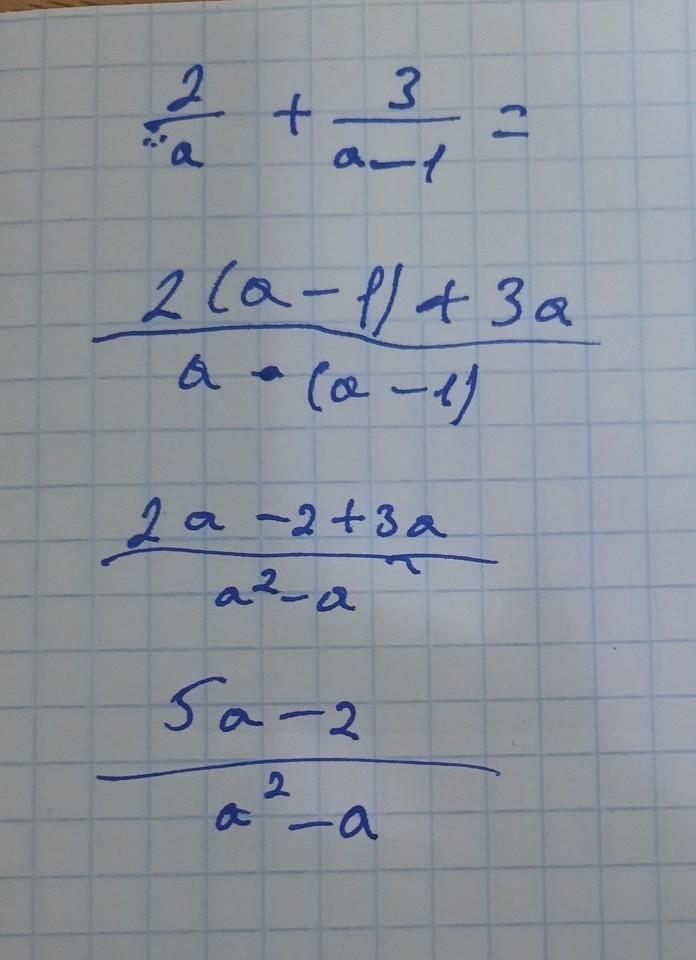 2/a + 3/a-1 =
2(a-1)+3a / a·(a-1)
2a-2+3a / a²-a
5a-2 / a²-a